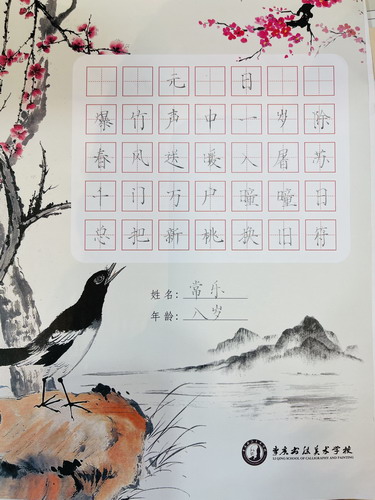 元日
爆竹声中一岁除
春风送暖入屠苏
千门万户曈曈日
总把新桃换旧符
姓名：常乐
年龄：八岁
书法美术学校
SCHOOL OF CALLIGRAPHY AND PAINTING